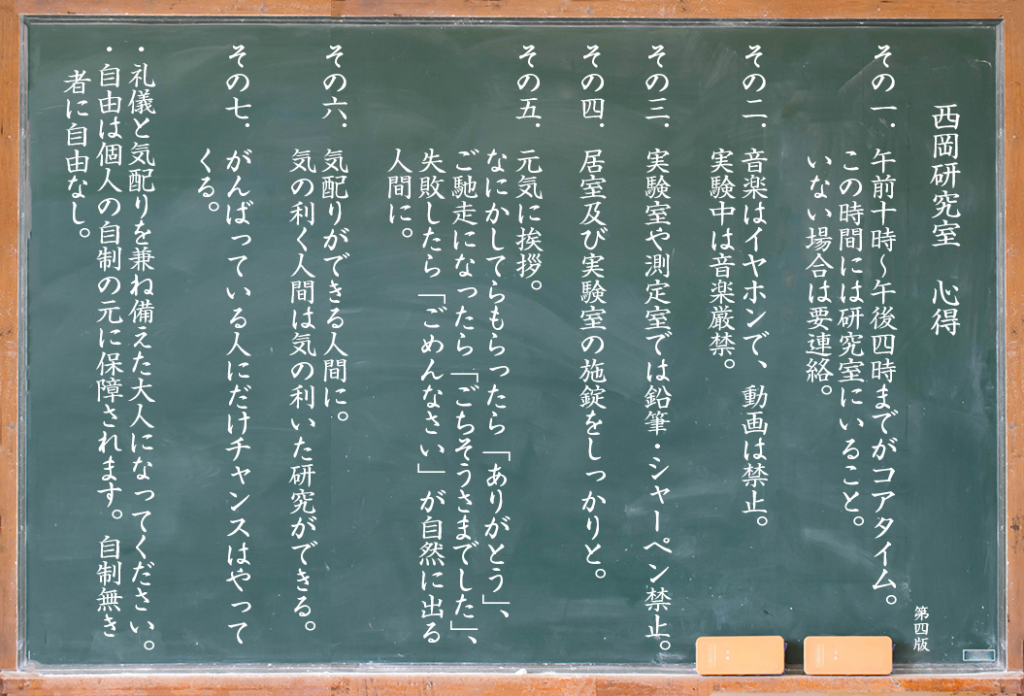 西岡研究室　心得
第四版
その一．　午前十時～午後四時までがコアタイム。
この時間には研究室にいること。
いない場合は要連絡。
その二．　音楽はイヤホンで、動画は禁止。
実験中は音楽厳禁。
その三．　実験室や測定室では鉛筆・シャーペン禁止。
その四．　居室及び実験室の施錠をしっかりと。
その五．　元気に挨拶。
なにかしてらもらったら「ありがとう」、
ご馳走になったら「ごちそうさまでした」、
失敗したら「ごめんなさい」が自然に出る
人間に。
その六．　気配りができる人間に。
気の利く人間は気の利いた研究ができる。
その七．　がんばっている人にだけチャンスはやって
くる。
・礼儀と気配りを兼ね備えた大人になってください。
・自由は個人の自制の元に保障されます。自制無き
者に自由なし。